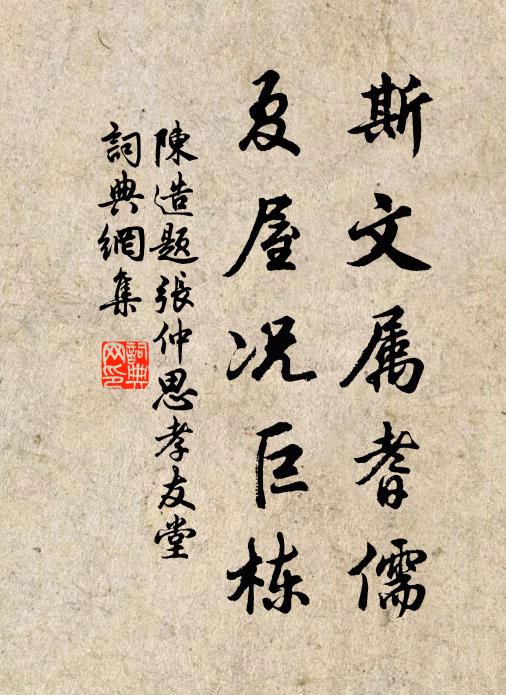 斯文属耆儒
夏屋况巨栋
陳造题張仲思孝友堂
詞典網集
詞典
网印